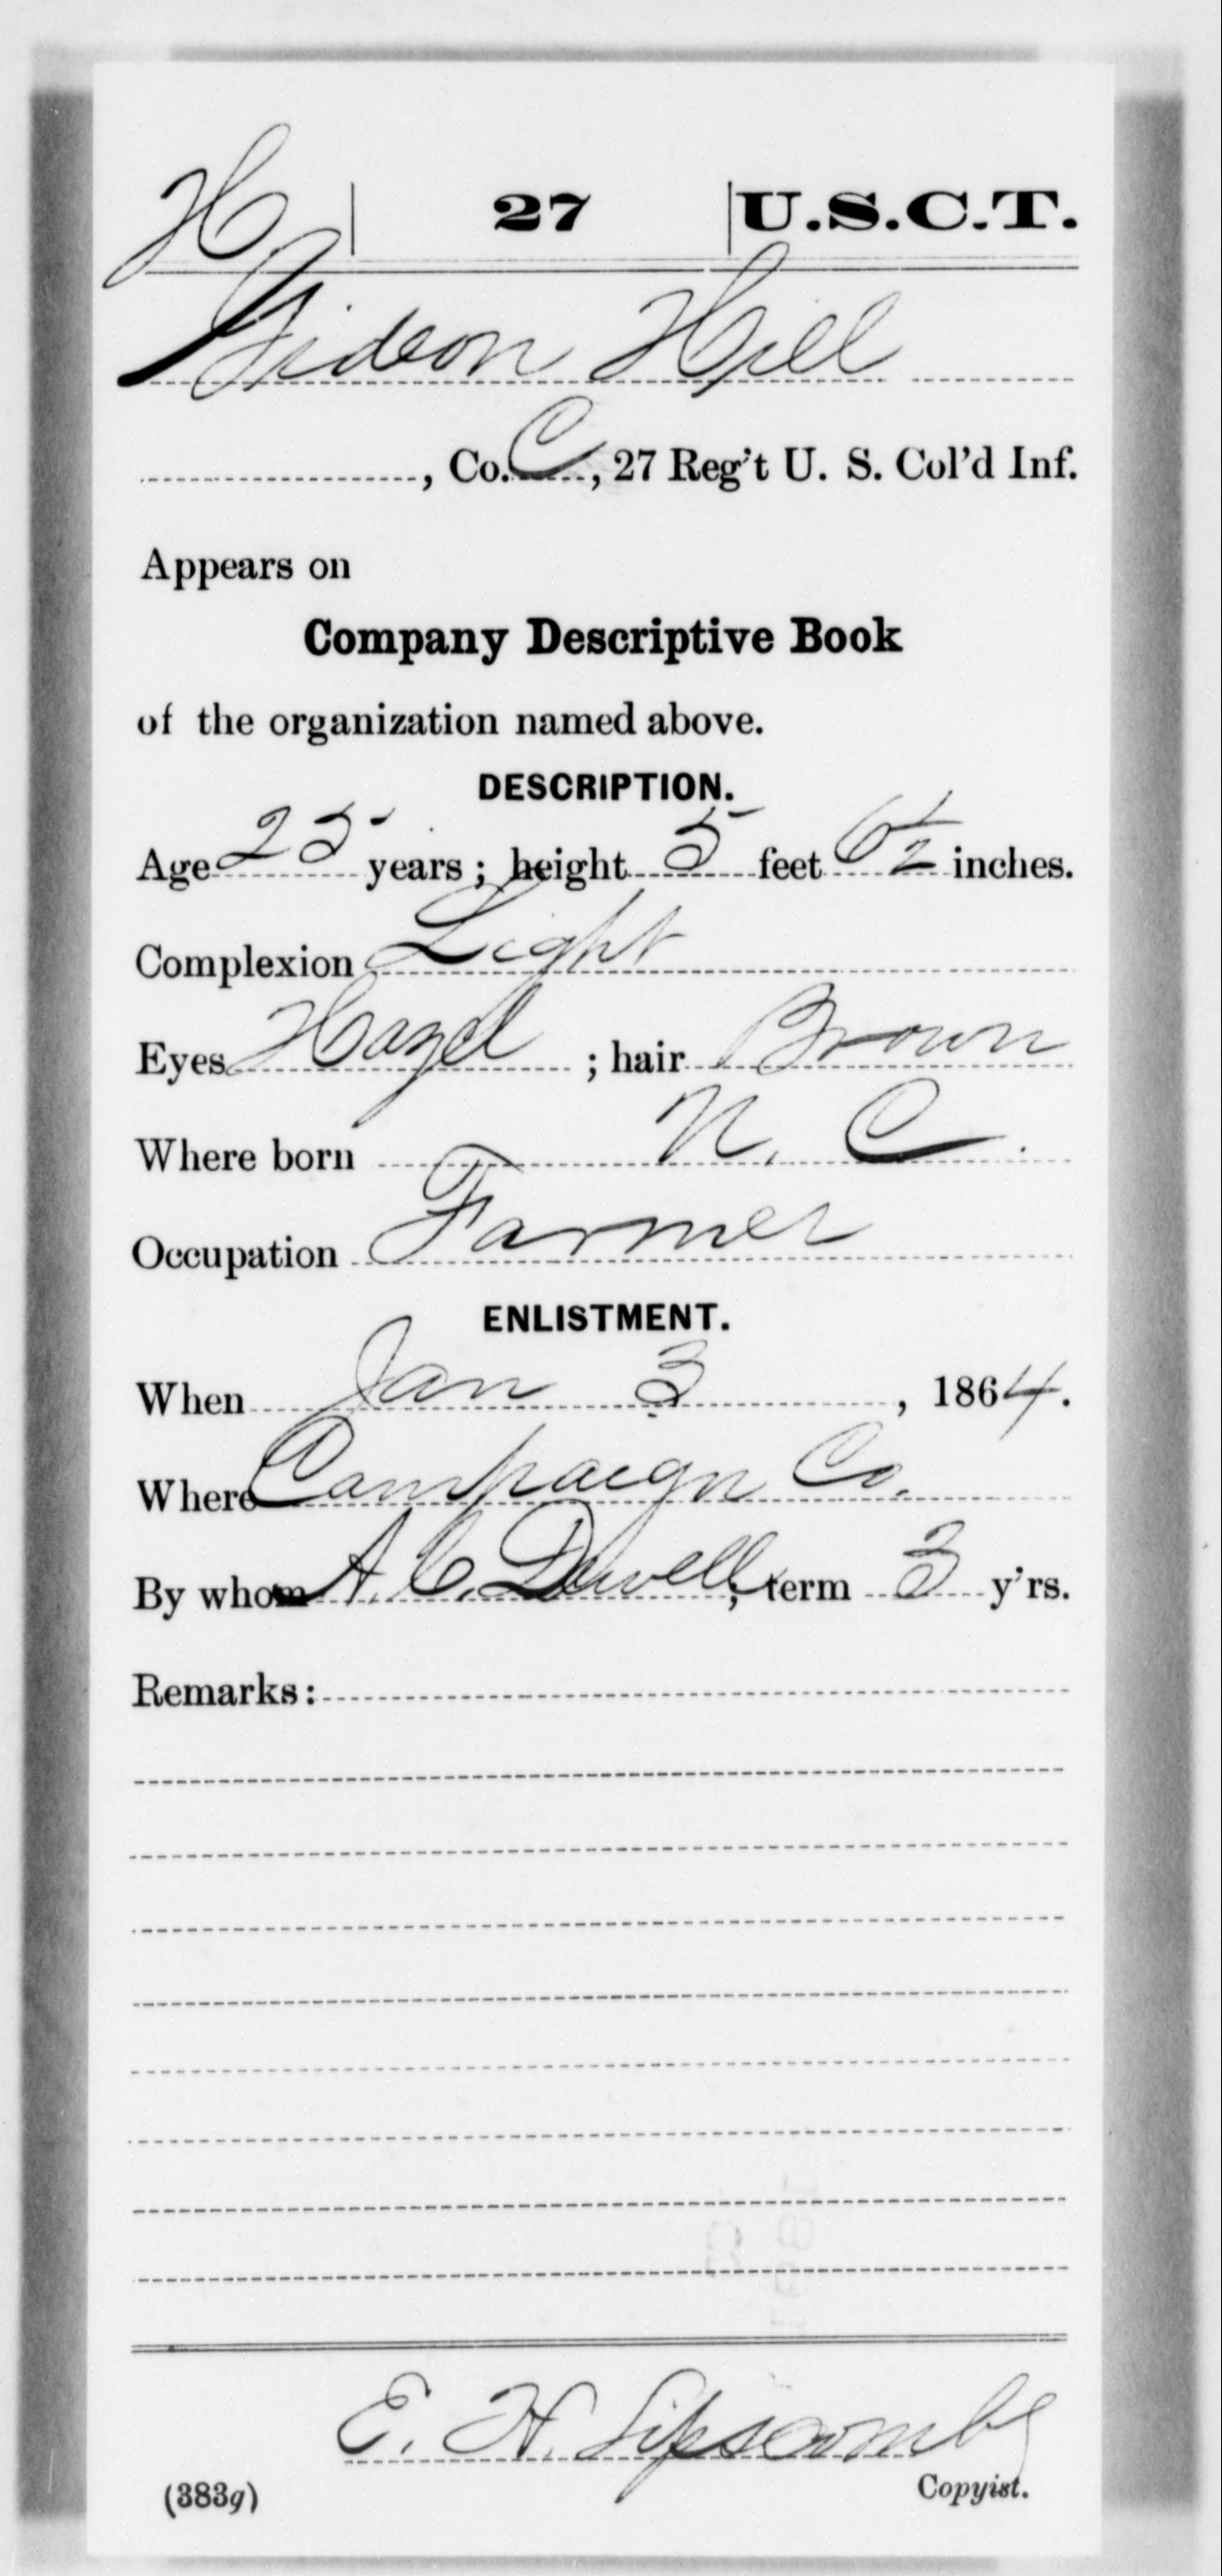 H | 27 | U.S.C.T.
Gideon Hill
, Co. C, 27 Reg't U. S. Col'd Inf.
Appears on
Company Descriptive Book
of the organization named above.
DESCRIPTION.
Age 25 years; height 5 feet 6 1/2 inches.
Complexion Light
Eyes Hazel ; hair Brown
Where born N. C.
Occupation Farmer
ENLISTMENT.
When Jan 3, 1864.
Where Campaign Co.
By whom A. C. Dewell, term 3 y'rs.
Remarks:
E. H. Lipscomb
(383g) Copyist.